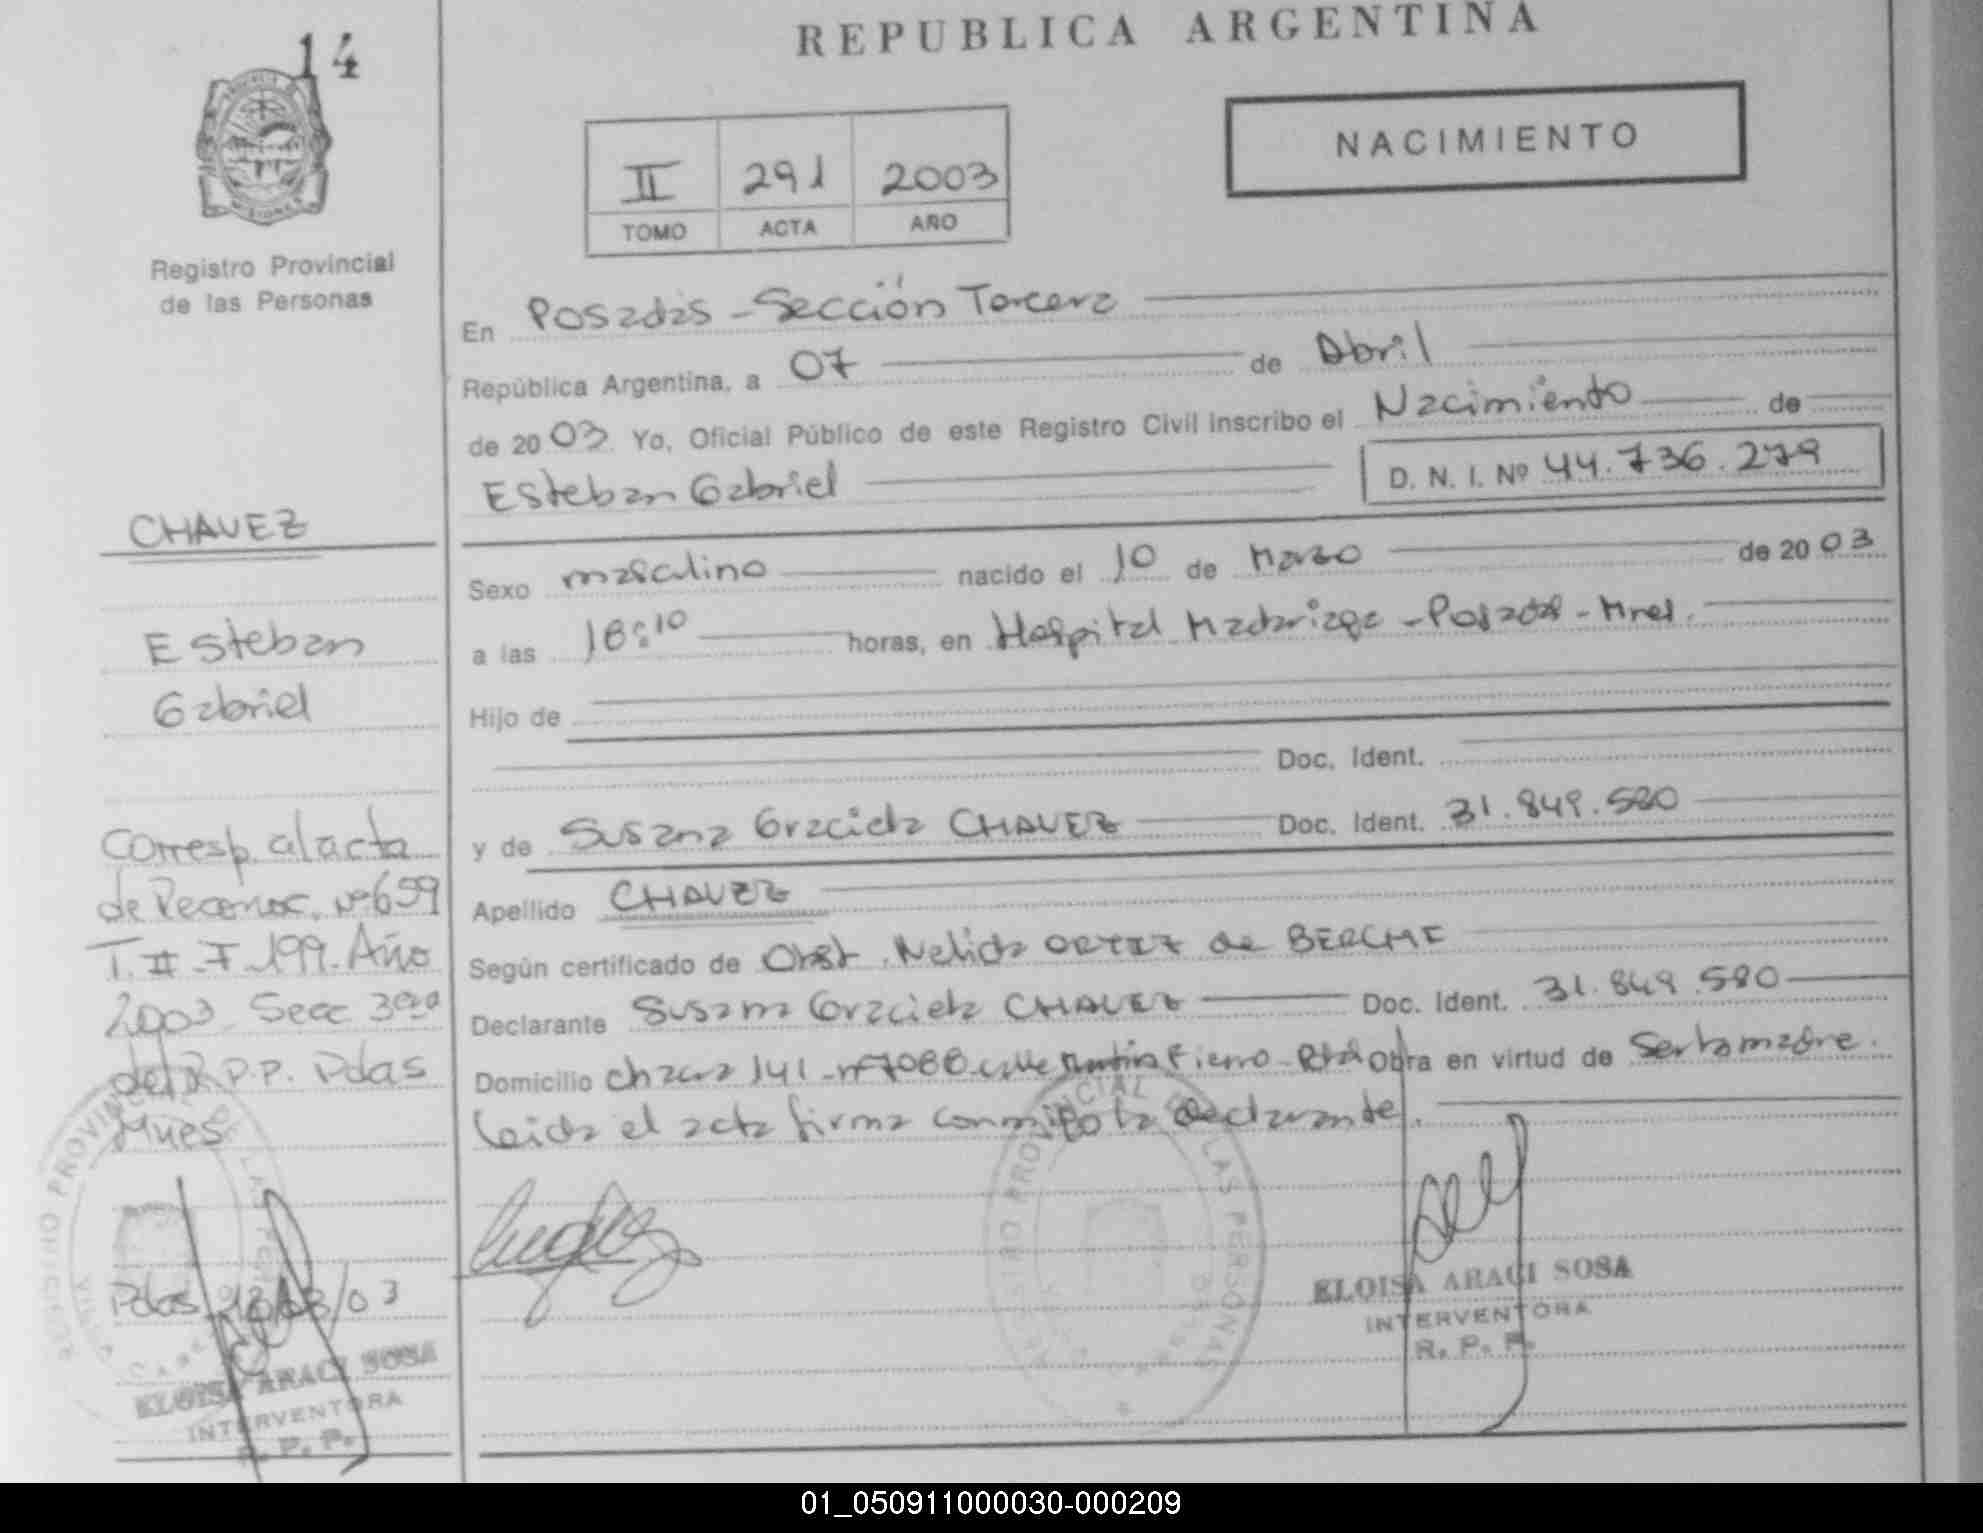 14
REPUBLICA ARGENTINA
NACIMIENTO
II 291 2003
TOMO ACTA AÑO
MISIONES
Registro Provincial
de las Personas
CHAVEZ
Esteban
Gabriel
Corresp. al acta
de Reconoc. Nº 659
T. II - F. 199 - Año
2003 - Secc 3era
del R.P.P. Pdas
Mnes
Pdas /03
ELOISA ARACI SOSA
INTERVENTORA
R. P. P.
En Posadas - Sección Tercera
República Argentina, a 07 de Abril
de 2003 Yo, Oficial Público de este Registro Civil inscribo el Nacimiento de
Esteban Gabriel D. N. I. Nº 44.736.279
Sexo masculino nacido el 10 de Marzo de 2003
a las 18:10 horas, en Hospital Madariaga - Posadas - Mnes.
Hijo de
Doc. Ident.
y de Susana Graciela CHAVEZ Doc. Ident. 31.849.580
Apellido CHAVEZ
Según certificado de Obst. Nelida ORTIZ de BERCHE
Declarante Susana Graciela CHAVEZ Doc. Ident. 31.849.580
Domicilio chacra 141 - nº 7088 calle Martín Fierro - Pdas Obra en virtud de Ser la madre.
Leída el acta firma conmigo la declarante.
REGISTRO PROVINCIAL DE LAS PERSONAS
ELOISA ARACI SOSA
INTERVENTORA
R. P. P.
01_050911000030-000209